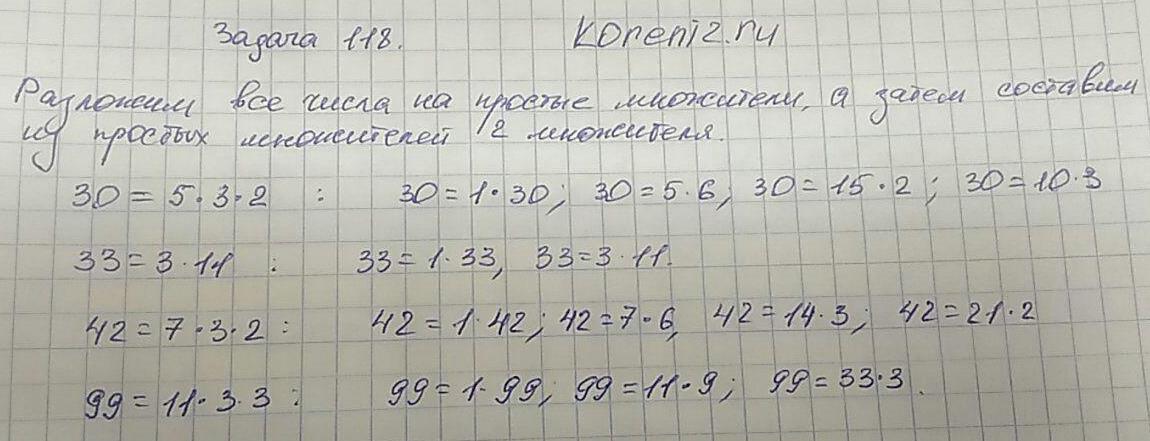 Задача 118. Koreniz.ru
Разложим все числа на простые множители, а затем составим
из простых множителей 2 множителя.
30 = 5·3·2 : 30 = 1·30; 30 = 5·6; 30 = 15·2; 30 = 10·3
33 = 3·11 : 33 = 1·33, 33 = 3·11.
42 = 7·3·2 : 42 = 1·42; 42 = 7·6, 42 = 14·3; 42 = 21·2
99 = 11·3·3 : 99 = 1·99; 99 = 11·9; 99 = 33·3.